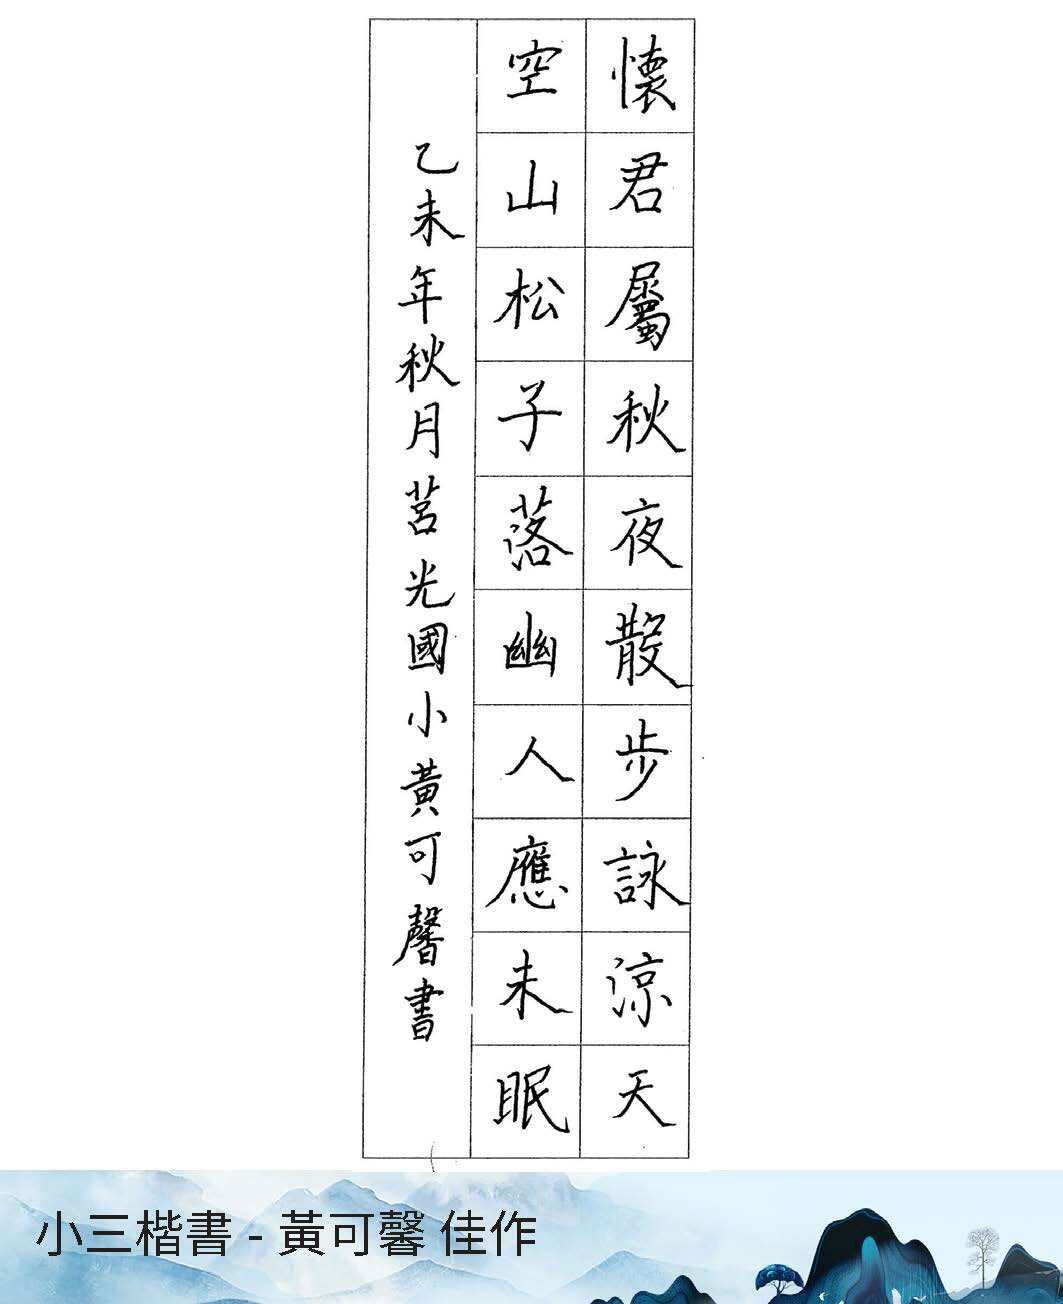 懷君屬秋夜散步詠涼天
空山松子落幽人應未眠
乙未年秋月莒光國小黃可馨書
小三楷書 - 黃可馨 佳作